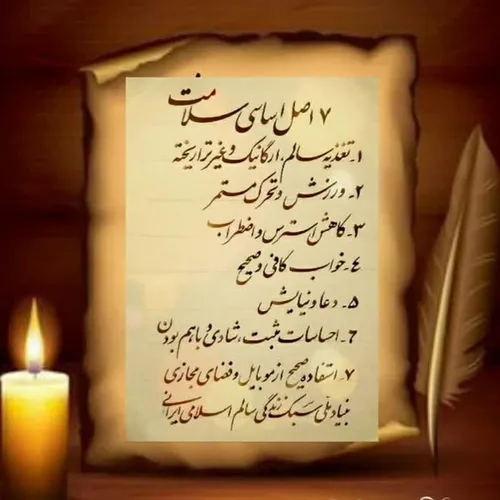 ۷ اصل اساسی سلامت
۱- تغذیه سالم، ارگانیک و غیر تراریخته
۲- ورزش و تحرک مستمر
۳- کاهش استرس و اضطراب
٤- خواب کافی و صحیح
۵- دعا و نیایش
۶- احساسات مثبت، شادی و با هم بودن
۷- استفاده صحیح از موبایل و فضای مجازی
بنیاد ملی سبک زندگی سالم اسلامی ایرانی